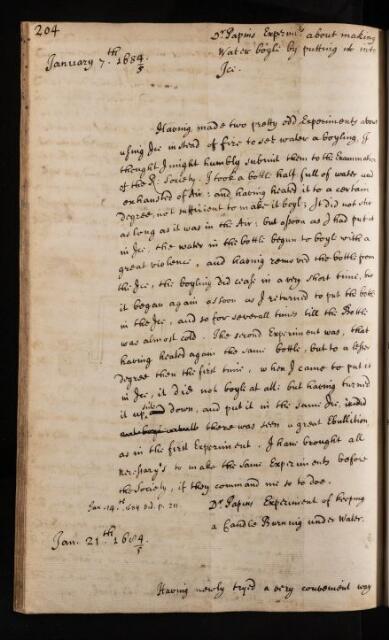 204
Dr Papins Experimt about making
Water boyle by putting it into
Ice.
January 7.th 1684/5
Having made two pretty odd Experiments about
using Ice instead of fire to set water a boyling, I
thought I might humbly submit them to the Examination
of the R: Society. I took a bottle half full of water and
exhausted of Air: and having heated it to a certain
degree, not sufficient to make it boyl; It did not stir
as long as it was in the Air; but assoon as I had put it
in Ice, the water in the bottle begun to boyl with a
great violence, and having removed the bottle from
the Ice, the boyling did cease in a very short time, but
it began again assoon as I returned to put the bottle
in the Ice, and so for severall times till the Bottle
was almost cold. The second Experiment was, that
having heated again the same bottle, but to a lesser
degree then the first time, when I came to put it
in Ice, it did not boyl at all: but having turned
it up side down, and put it in the same Ice,
there was seen a great Ebullition
as in the first Experiment. I have brought all
necessary's to make the same Experiments before
the Society, if they command me so to doe.
Jan. 14.th
Dr Papins Experiment of keeping
a Candle Burning under Water.
Jan. 21.th 1684/5
Having newly try'd a very convenient way